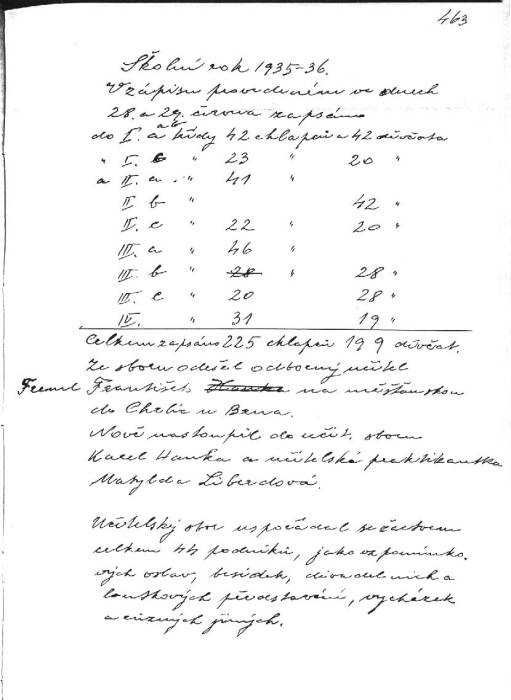 463
Školní rok 1935-36.
V zápisu provedeném ve dnech
28. a 29. června zapsáno
do I. a ab třídy 42 chlapců a 42 děvčata
" I. c " 23 " 20 "
a II. a " 41 "
II b " 42 "
II. c " 22 " 20 "
III. a " 46 "
III. b " 28 " 28 "
III. c " 20 28 "
IV. " 31 19 "
Celkem zapsáno 225 chlapců 199 děvčat.
Ze sboru odešel odborný učitel
František Hanka na měšťanskou
do Chrlic u Brna.
Nově nastoupil do učit. sboru
Karel Hanka a učitelská praktikantka
Matylda Liberdová.
Učitelský sbor uspořádal se žactvem
celkem 44 podniků, jako vzpomínko-
vých oslav, besídek, divadelních a
loutkových představení, vycházek
a různých jiných.